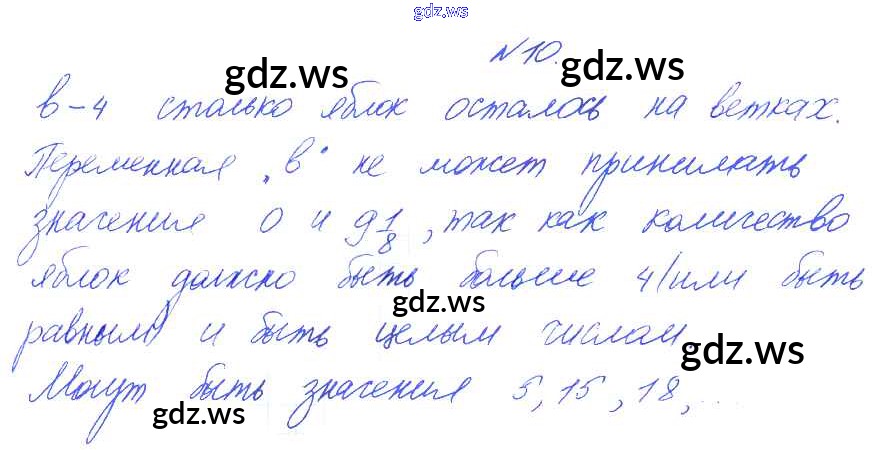 gdz.ws
№10.
gdz.ws gdz.ws
в-4 столько яблок осталось на ветках.
Переменная „в" не может принимать
значения 0 и 9 1/8, так как количество
яблок должно быть больше 4 (или быть
gdz.ws
равным) и быть целым числом.
gdz.ws
Могут быть значения 5, 15, 18, ...
gdz.ws